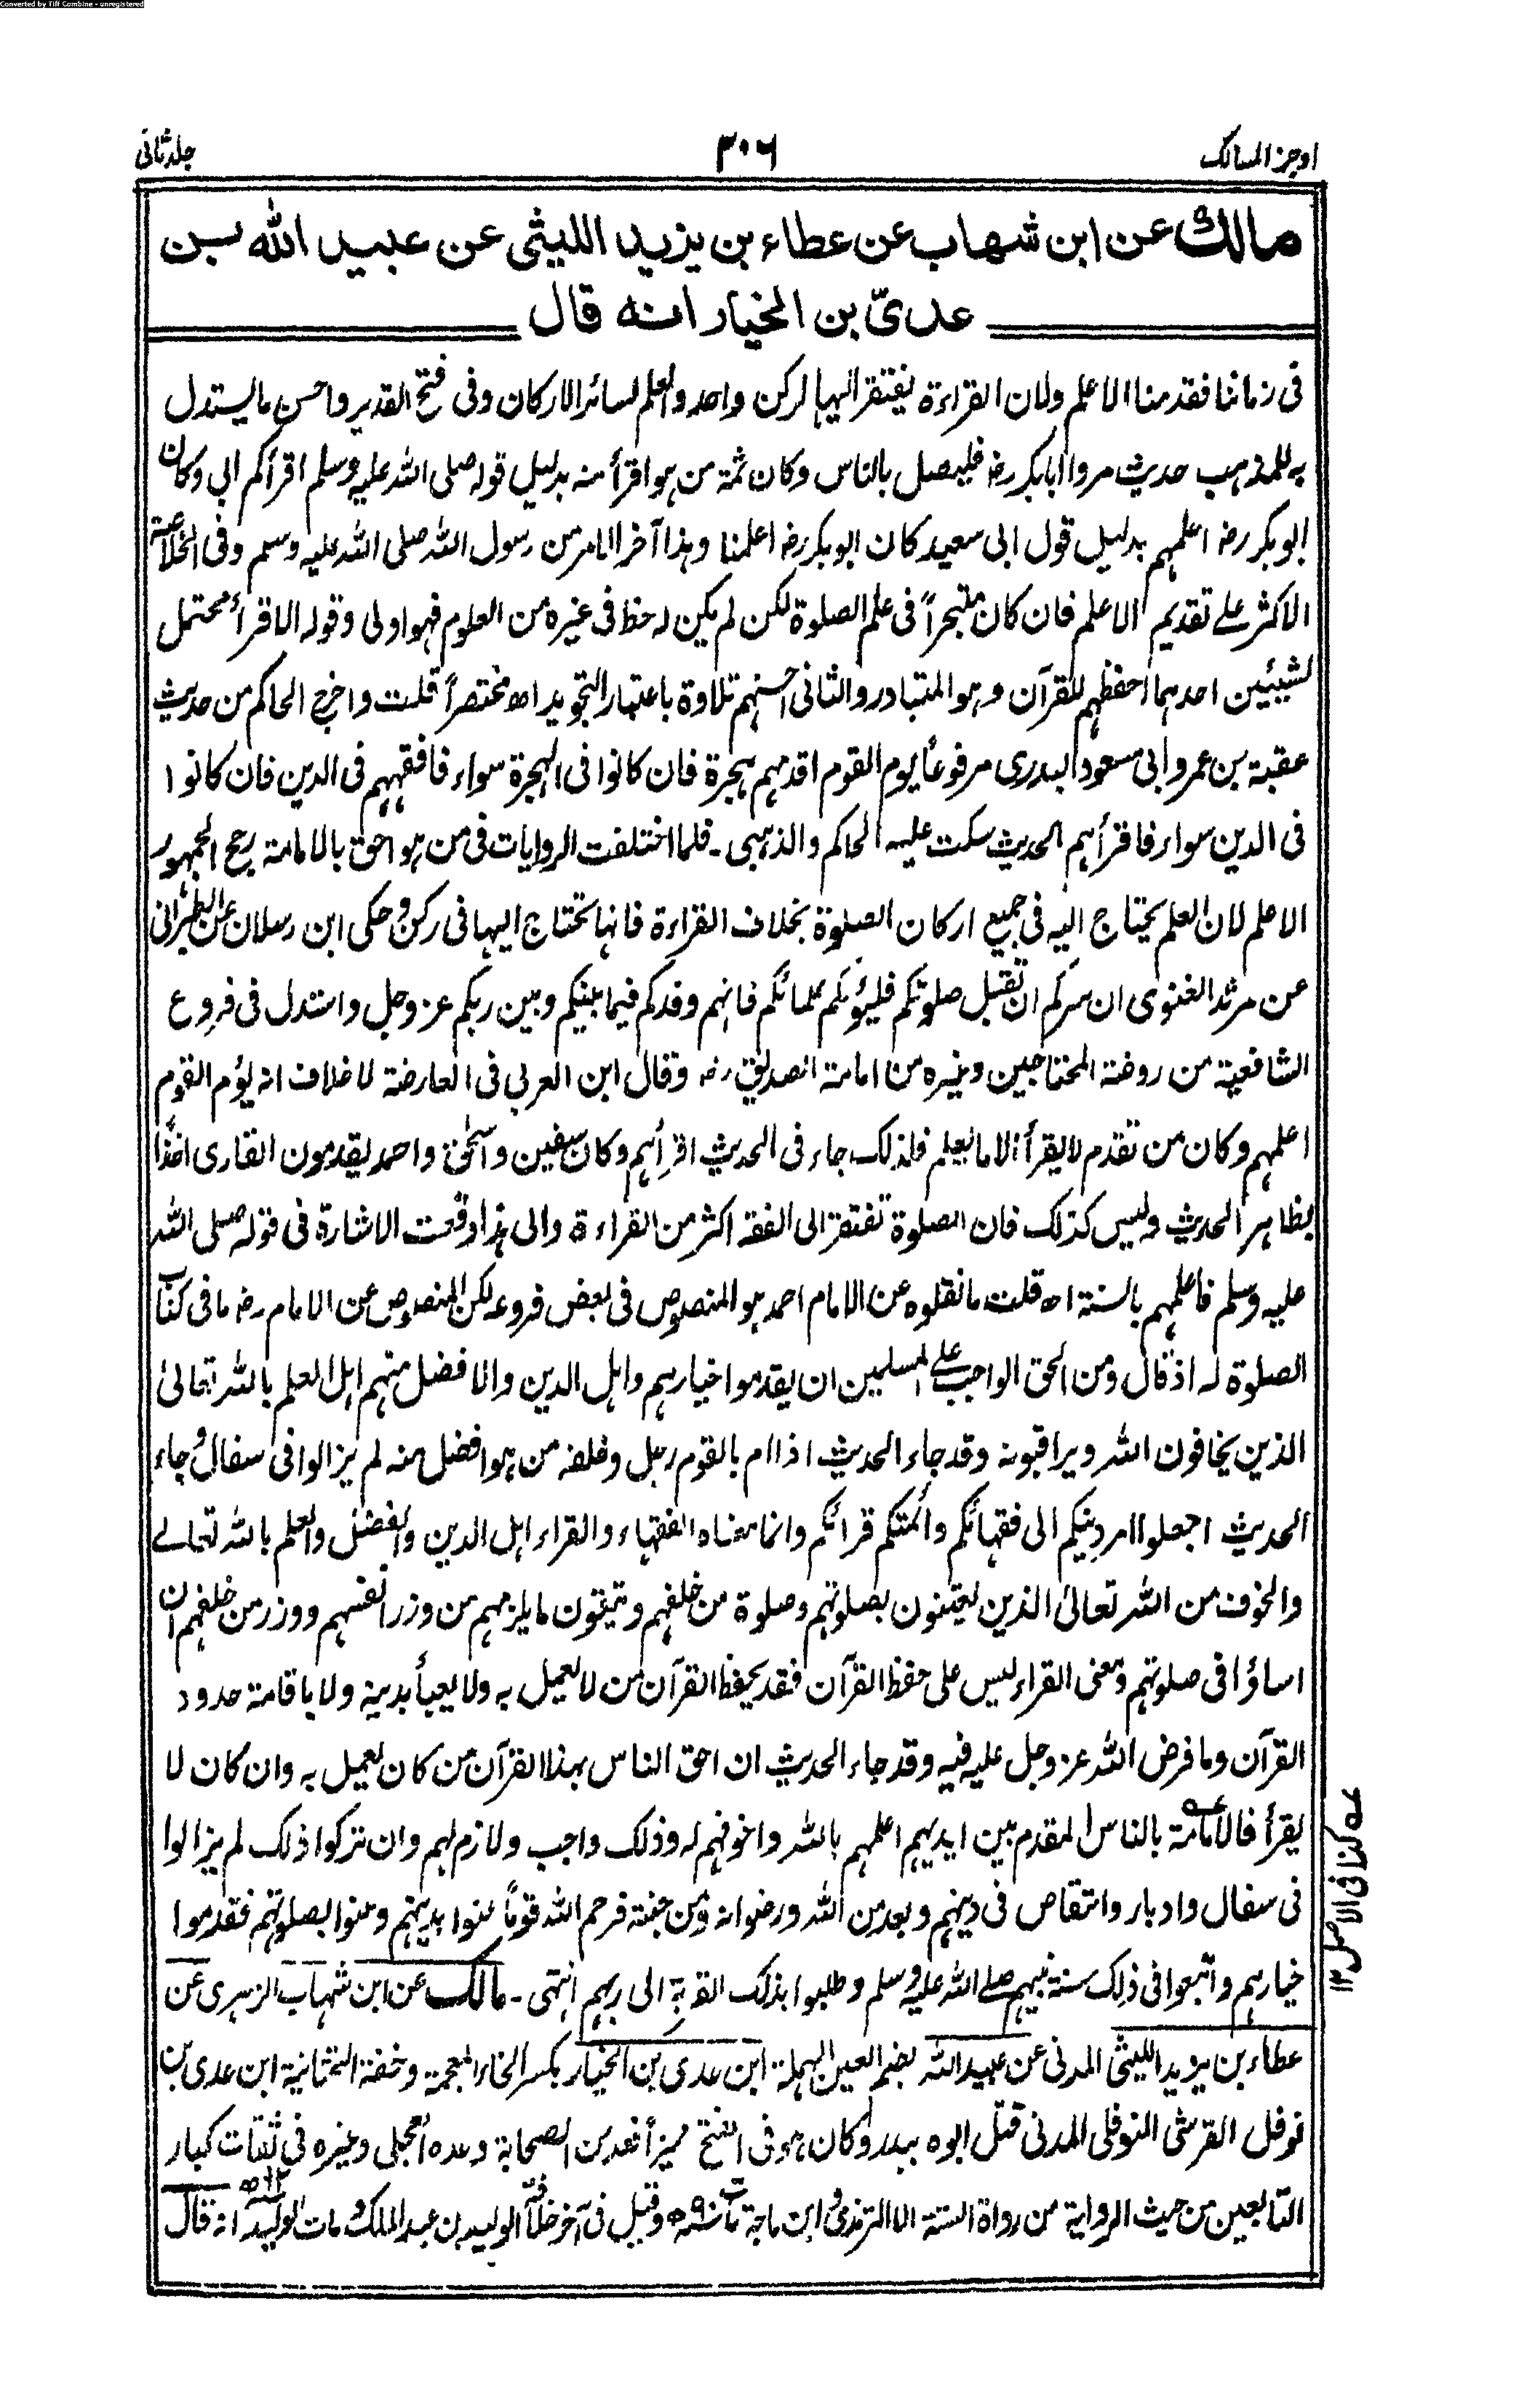 Converted by Tiff Combine - unregistered
اوجز المسالك ٣٠٦ جلد ثانى
مالك عن ابن شهاب عن عطاء بن يزيد الليثى عن عبيد الله بن
عدىّ بن الخيار انه قال
فى زماننا فقدمنا الاعلم ولان القراءة يفتقر اليها لركن واحد والعلم لسائر الاركان وفى فتح القدير واحسن ما يستدل
به للمذهب حديث مروا ابابكر رضـ فليصل بالناس وكان ثمة من هو اقرأ منه بدليل قوله صلى الله عليه وسلم اقرأكم ابي وكان
ابوبكر رضـ اعلمهم بدليل قول ابى سعيد كان ابوبكر رضـ اعلمنا وهذا آخر الامر من رسول الله صلى الله عليه وسلم وفى الخلاصة
الاكثر على تقديم الاعلم فان كان متبحراً فى علم الصلوة لكن لم يكن له حظ فى غيره من العلوم فهو اولى وقوله الاقرأ محتمل
لشيئين احدهما احفظهم للقرآن وهو المتبادر والثانى احسنهم تلاوة باعتبار التجويد اھ مختصراً قلت واخرج الحاكم من حديث
عقبة بن عمرو ابى مسعود البدرى مرفوعاً يوم القوم اقدمهم هجرة فان كانوا فى الهجرة سواء فافقههم فى الدين فان كانوا
فى الدين سواء فاقرأهم الحديث سكت عليه الحاكم والذهبى ۔ فلما اختلفت الروايات فى من هو احق بالامامة رجح الجمهور
الاعلم لان العلم يحتاج اليه فى جميع اركان الصلوة بخلاف القراءة فانها تحتاج اليها فى ركن وحكى ابن رسلان عن الطبرانى
عن مرثد الغنوى ان سركم ان تقبل صلوتكم فليؤمكم علمائكم فانهم وفدكم فيما بينكم وبين ربكم عز وجل واستدل فى فروع
الشافعية من روضة المحتاجين وغيره من امامة الصديق رضـ وقال ابن العربي فى العارضة لا خلاف انه يؤم القوم
اعلمهم وكان من تقدم لا يقرأ الا ما يعلم فلذلك جاء فى الحديث اقرأهم وكان سفين واسحٰق واحمد يقدمون القارى اخذًا
بظاهر الحديث وليس كذلك فان الصلوة تفتقر الى الفقه اكثر من القراءة والى هذا وقعت الاشارة فى قوله صلى الله
عليه وسلم فاعلمهم بالسنة اھ قلت ما نقلوه عن الامام احمد هو المنصوص فى بعض فروعه لكن المنصوص عن الامام رضـ ما فى كتاب
الصلوة له اذ قال ومن الحق الواجب على المسلمين ان يقدموا خيارهم واهل الدين والافضل منهم اهل العلم بالله تعالىٰ
الذين يخافون الله ويراقبونه وقد جاء الحديث اذا ام بالقوم رجل وخلفه من هو افضل منه لم يزالوا فى سفال وجاء
الحديث اجعلوا امر دينكم الى فقهائكم وائمتكم قرائكم وانما معناه الفقهاء والقراء اهل الدين والفضل والعلم بالله تعالے
والخوف من الله تعالىٰ الذين يعتنون بصلوتهم وصلوة من خلفهم ويتقون ما يلزمهم من وزر انفسهم ووزر من خلفهم ان
اساؤا فى صلوتهم ومعنى القراء ليس على حفظ القرآن فقد يحفظ القرآن من لا يعمل به ولا يعبأ بدينه ولا باقامة حدود
القرآن وما فرض الله عز وجل عليه فيه وقد جاء الحديث ان احق الناس بهذا القرآن من كان يعمل به وان كان لا
يقرأ فالامامة بالناس المقدم بين ايديهم اعلمهم بالله واخوفهم له وذلك واجب ولازم لهم وان تركوا ذلك لم يزالوا
فى سفال وادبار وانتقاص فى دينهم وبعد من الله ورضوانه ومن جنته فرحم الله قوماً عنوا بدينهم وعنوا بصلوتهم فقدموا
خيارهم واتبعوا فى ذلك سنة نبيهم صلے الله عليه وسلم وطلبوا بذلك القربة الى ربهم انتهى ۔ مالك عن ابن شهاب الزهرى عن
عطاء بن يزيد الليثى المدنى عن عبيد الله بضم العين المهملة ابن عدى بن الخيار بكسر الخاء المعجمة وخفة التحتانية ابن عدى بن
نوفل القرشى النوفلى المدنى قتل ابوه ببدر وكان هو فى الفتح مميزاً فعد من الصحابة وعده العجلى وغيره فى ثقات كبار
التابعين من حيث الرواية من رواة الستة الا الترمذى وابن ماجة مات سنة ٩٠ھ وقيل فى آخر خلافة الوليد بن عبد الملك ومات الوليد انه قال
عه كذا فى الاصل ١٢